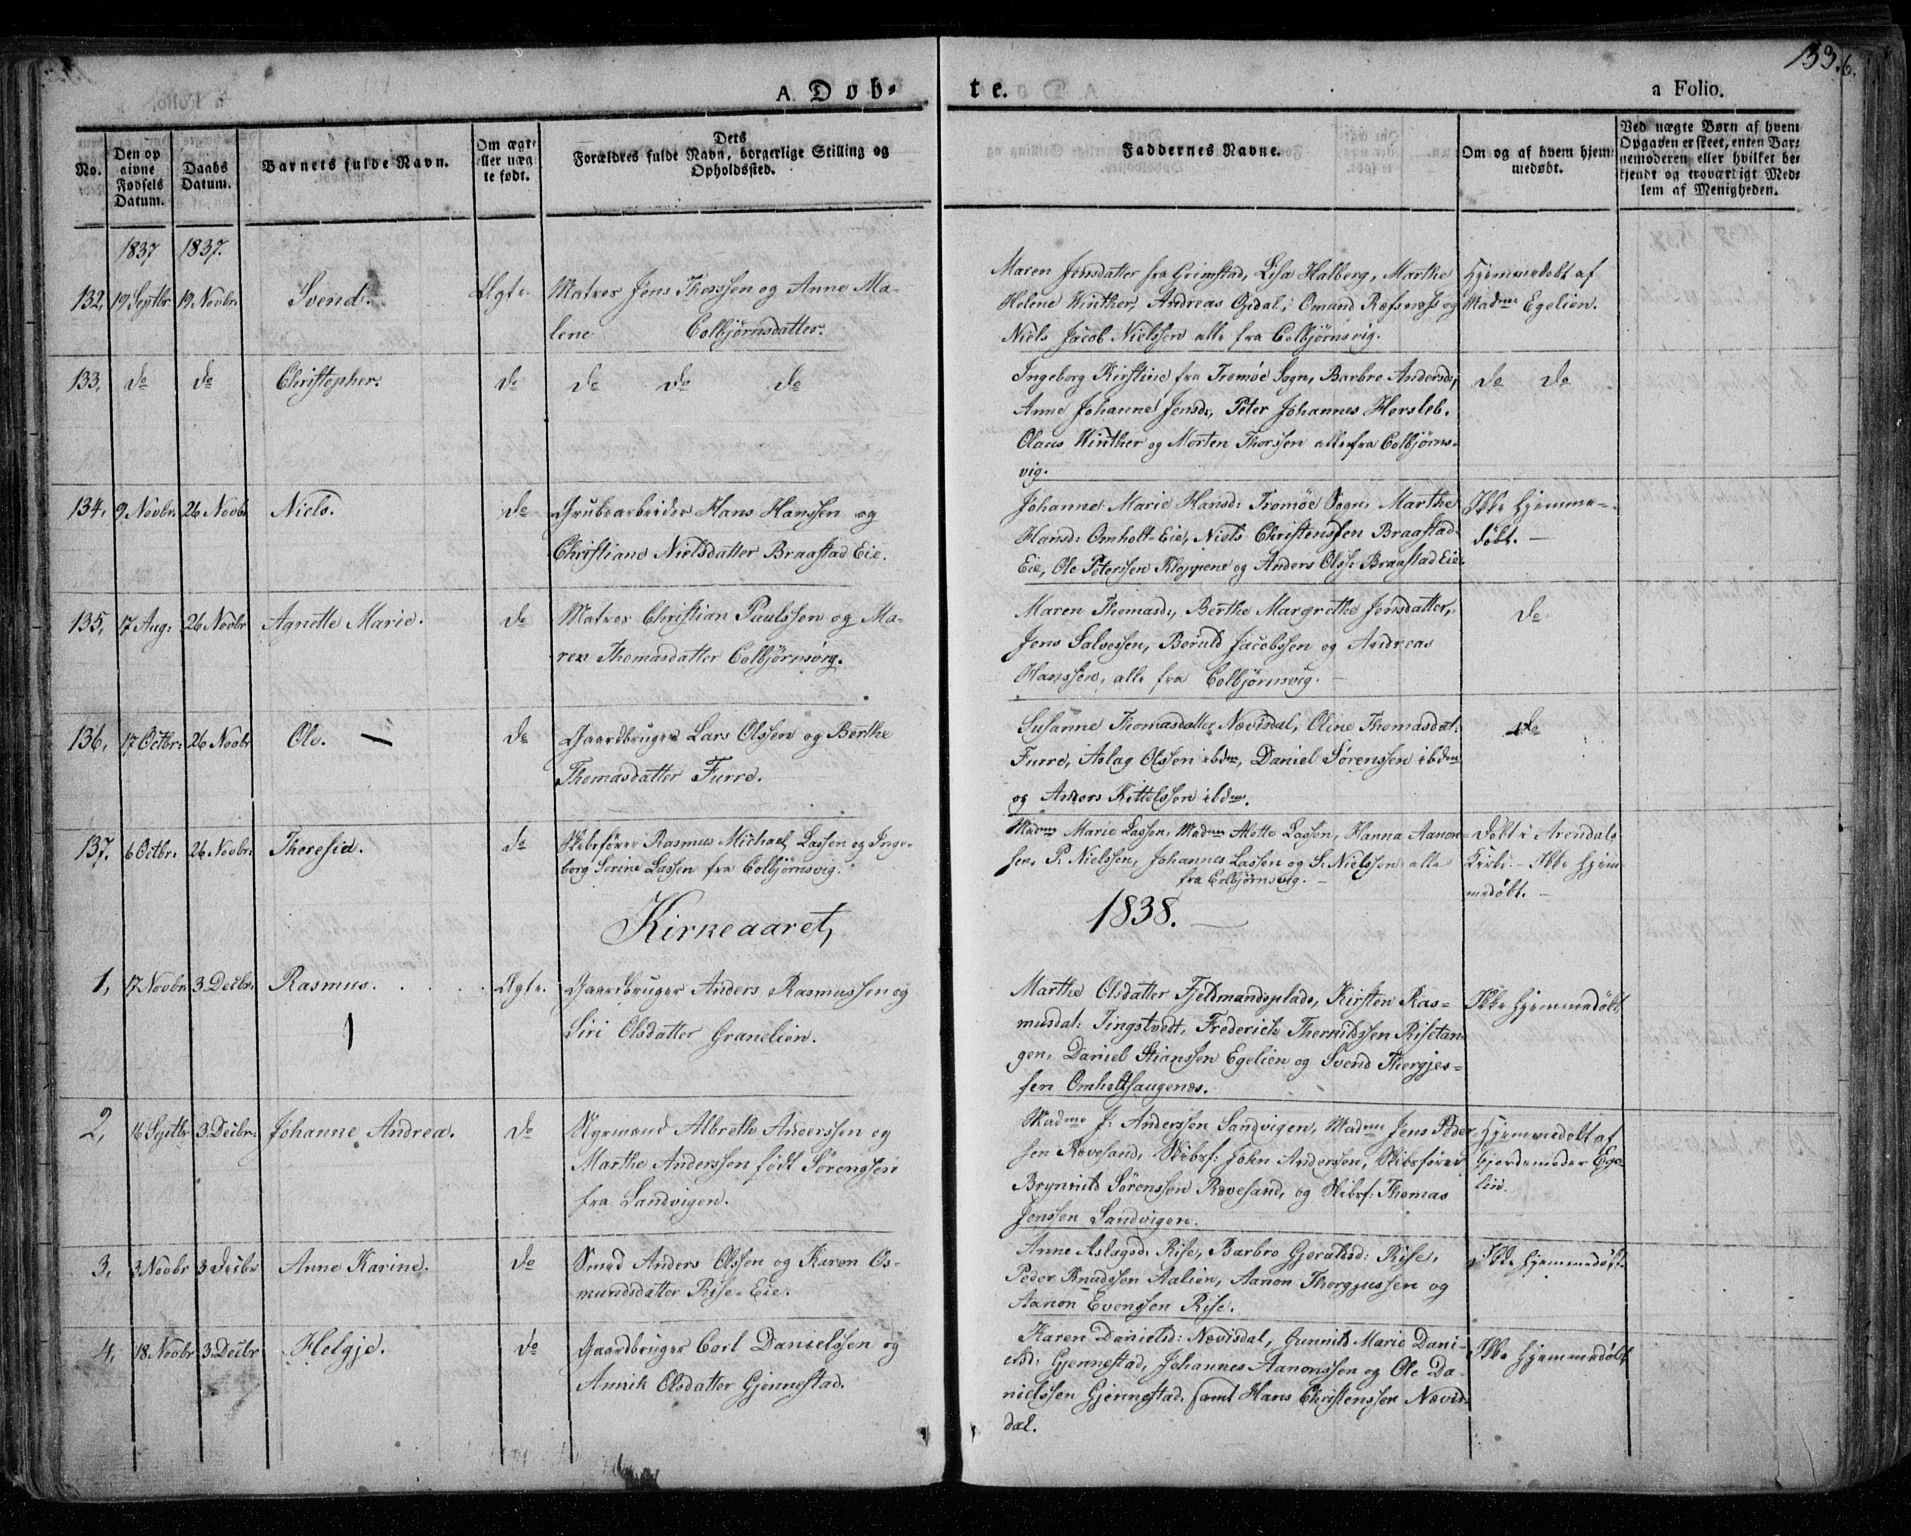 133.
6.
A. Döb-
te.
a Folio.
No.
Den op
aivne
Fødsels
Datum.
Daabs
Datum.
Barnets fulde Navn.
Om ægt
eller uæg
te født.
Dets
Forældres fulde Navn, borgerlige Stilling og
Opholdssted.
Faddernes Navne.
Om og af hvem hjem
medøbt.
Ved uægte Børn af hvem
Opgaven er skeet, enten Bar-
nemoderen eller hvilket be-
kjendt og troværdigt Med-
lem af Menigheden.
1837 1837.
132, 19 Septbr 19 Novbr. Svend. Ægte. Matros Jens Thorssen og Anne Ma-
lene Colbjørnsdatter.
Maren Jensdatter fra Grimstad, Lisa Halberg, Marthe
Helene Winther, Andreas Gjdal, Omund Ræfsnæss og
Niels Jacob Nielssen alle fra Colbjørnsvig.
Hjemmedøbt af
Madme Egelien.
133, do do Christopher. do do do do
Ingeborg Kirstine fra Tromøe Sogn, Barbro Andersd:,
Anne Johanne Jensd:, Peter Johannes Hersleb.
Olaus Winther og Morten Thorssen alle fra Colbjørns-
vig.
do do
134, 9 Novbr. 26 Novbr Niels. do Grubearbeider Hans Hanssen og
Christiane Nielsdatter Braastad Eie.
Johanne Marie Hansd: Tromøe Sogn, Marthe
Hansd: Omholt-Eie, Niels Christenssen Braastad-
Eie, Ole Peterssen Kloppene og Anders Olss: Braastad Eie.
Ikke hjemme-
døbt. —
135, 17 Aug: 26 Novbr Agnette Marie. do Matros Christian Paulssen og Ma-
ren Thomasdatter Colbjørnsvig.
Maren Thomasd:, Berthe Margrethe Jensdatter,
Jens Salvessen, Beruld Jacobssen og Andreas
Hanssen, alle fra Colbjørnsvig. —
do
136, 17 Octbr: 26 Novbr Ole. — do Gaardbruger Lars Olssen og Berthe
Thomasdatter Furre.
Susanne Thomasdatter Nævisdal, Oline Thomasdat:
Furre, Aslag Olssen ibdm, Daniel Sørenssen ibdm
og Anders Kittelssen ibdm.
do
137. 6 Octbr. 26 Novbr. Theresia. do Skibsfører Rasmus Michael Lassen og Inge-
borg Serine Lassen fra Colbjørnsvig.
Madme Marie Lassen, Madme Mette Lassen, Hanna Aanon-
sen, P. Nielssen, Johannes Lassen og S. Nielssen alle
fra Colbjørnsvig. —
Døbt i Arendals
Kirke. — Ikke hjem-
medøbt. —
Kirkeaaret,
1838. —
1, 17 Novbr 3 Decbr. Rasmus. Ægte. Gaardbruger Anders Rasmussen og
Siri Olsdatter Granelien.
Marthe Olsdatter Fjeldmandsplads, Kirsten Ras-
musdat: Tingstvedt, Frederich Therkildssen Risetan-
gen, Daniel Stianssen Egelien og Svend Thorgjes-
sen Omholtshaugenes.
Ikke hjemmedøbt
2, 16 Septbr 3 Decbr: Johanne Andrea. do Styrmand Albreth Anderssen og
Marthe Anderssen født Sørenssen
fra Sandvigen.
Madme J: Anderssen Sandvigen, Madme Jens Peder-
sen Rævesand, Skibsf: John Anderssen, Skibsfører
Brynnild Sørenssen Rævesand, og Skibsf: Thomas
Jenssen Sandvigen.
Hjemmedøbt af
Gjordemoder Ege-
lin.
3, 3 Novbr 3 Decbr Anne Karine. do Smed Anders Olssen og Karen Os-
mundsdatter Rise-Eie.
Anne Aslagsd: Rise, Barbro Gjeruldsd: Rise,
Peder Knudssen Aalien, Aanon Thorgjussen og
Aanon Evenssen Rise.
Ikke hjemmedøbt.
4, 18 Novbr 3 Decbr Helgje. do Gaardbruger Carl Danielssen og
Annik Olsdatter Gjennestad.
Karen Danielsd: Nævisdal, Gunnild Marie Dani-
elsd: Gjennestad, Johannes Aanonssen og Ole Da-
nielssen Gjennestad, samt Hans Christenssen Nævis-
dal.
Ikke hjemmedøbt